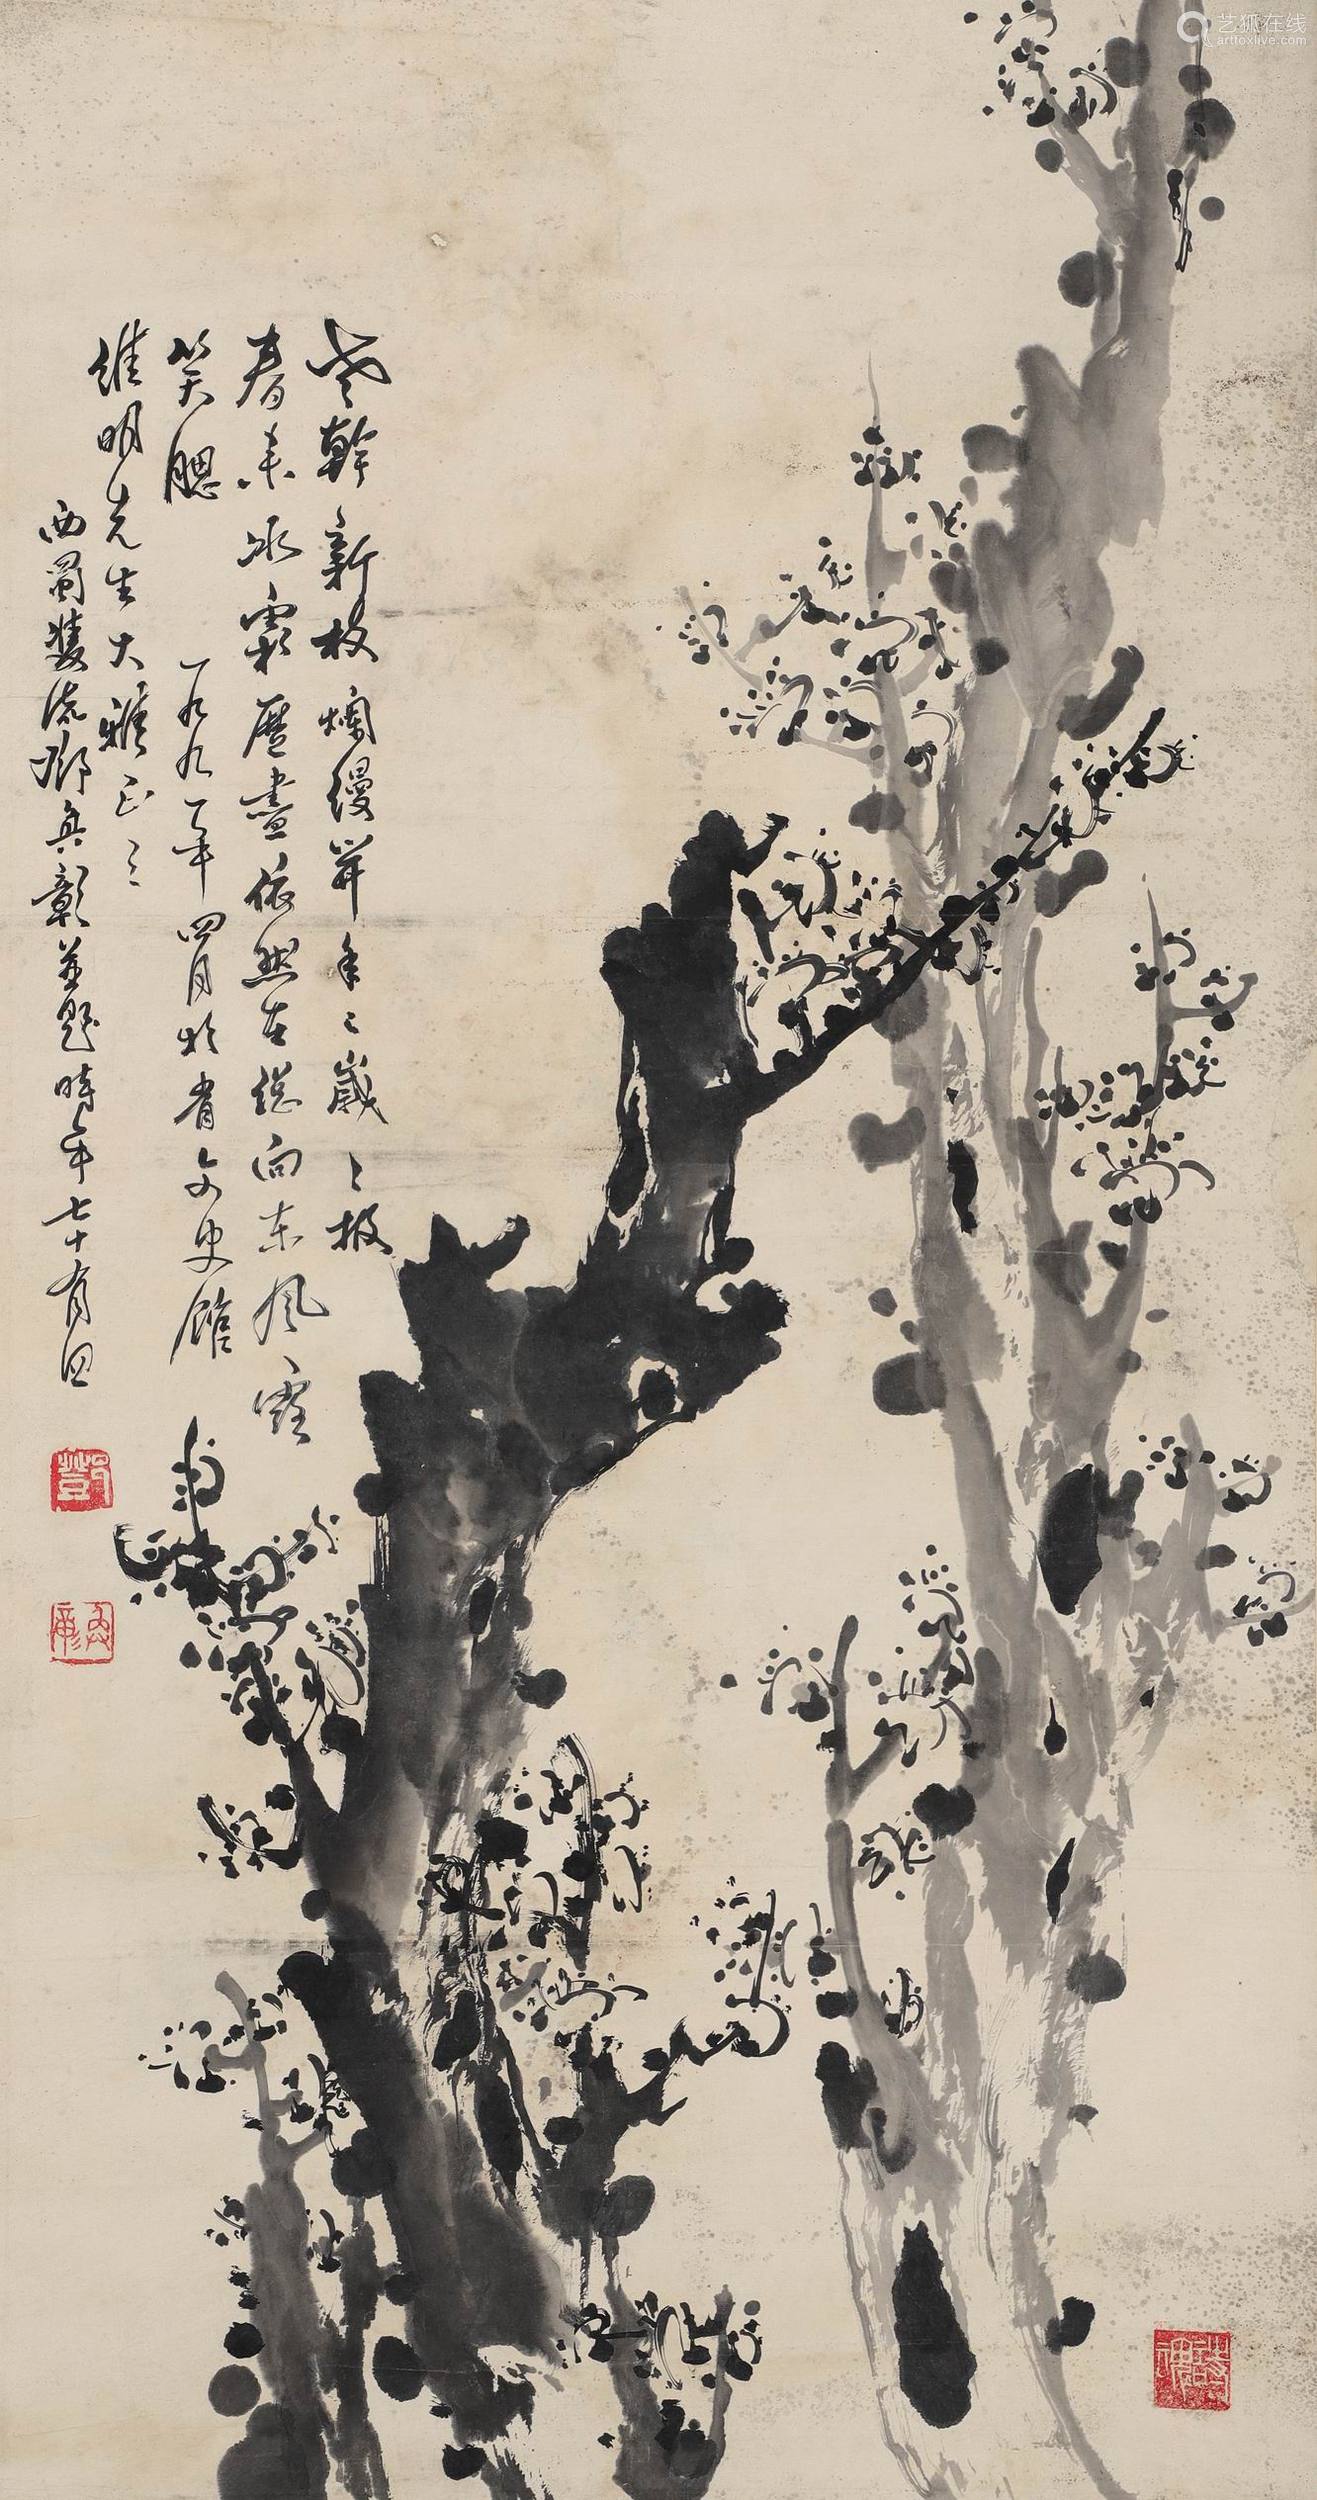 老幹新枝爛縵開年〻歲〻報
春來冰霜歷盡依然在總向東風露
笑腮 一九九一年四月於省文史館
維明先生大雅正之
西蜀雙流鄧奐彰並題時年七十有四
艺狐在线
artfoxlive.com